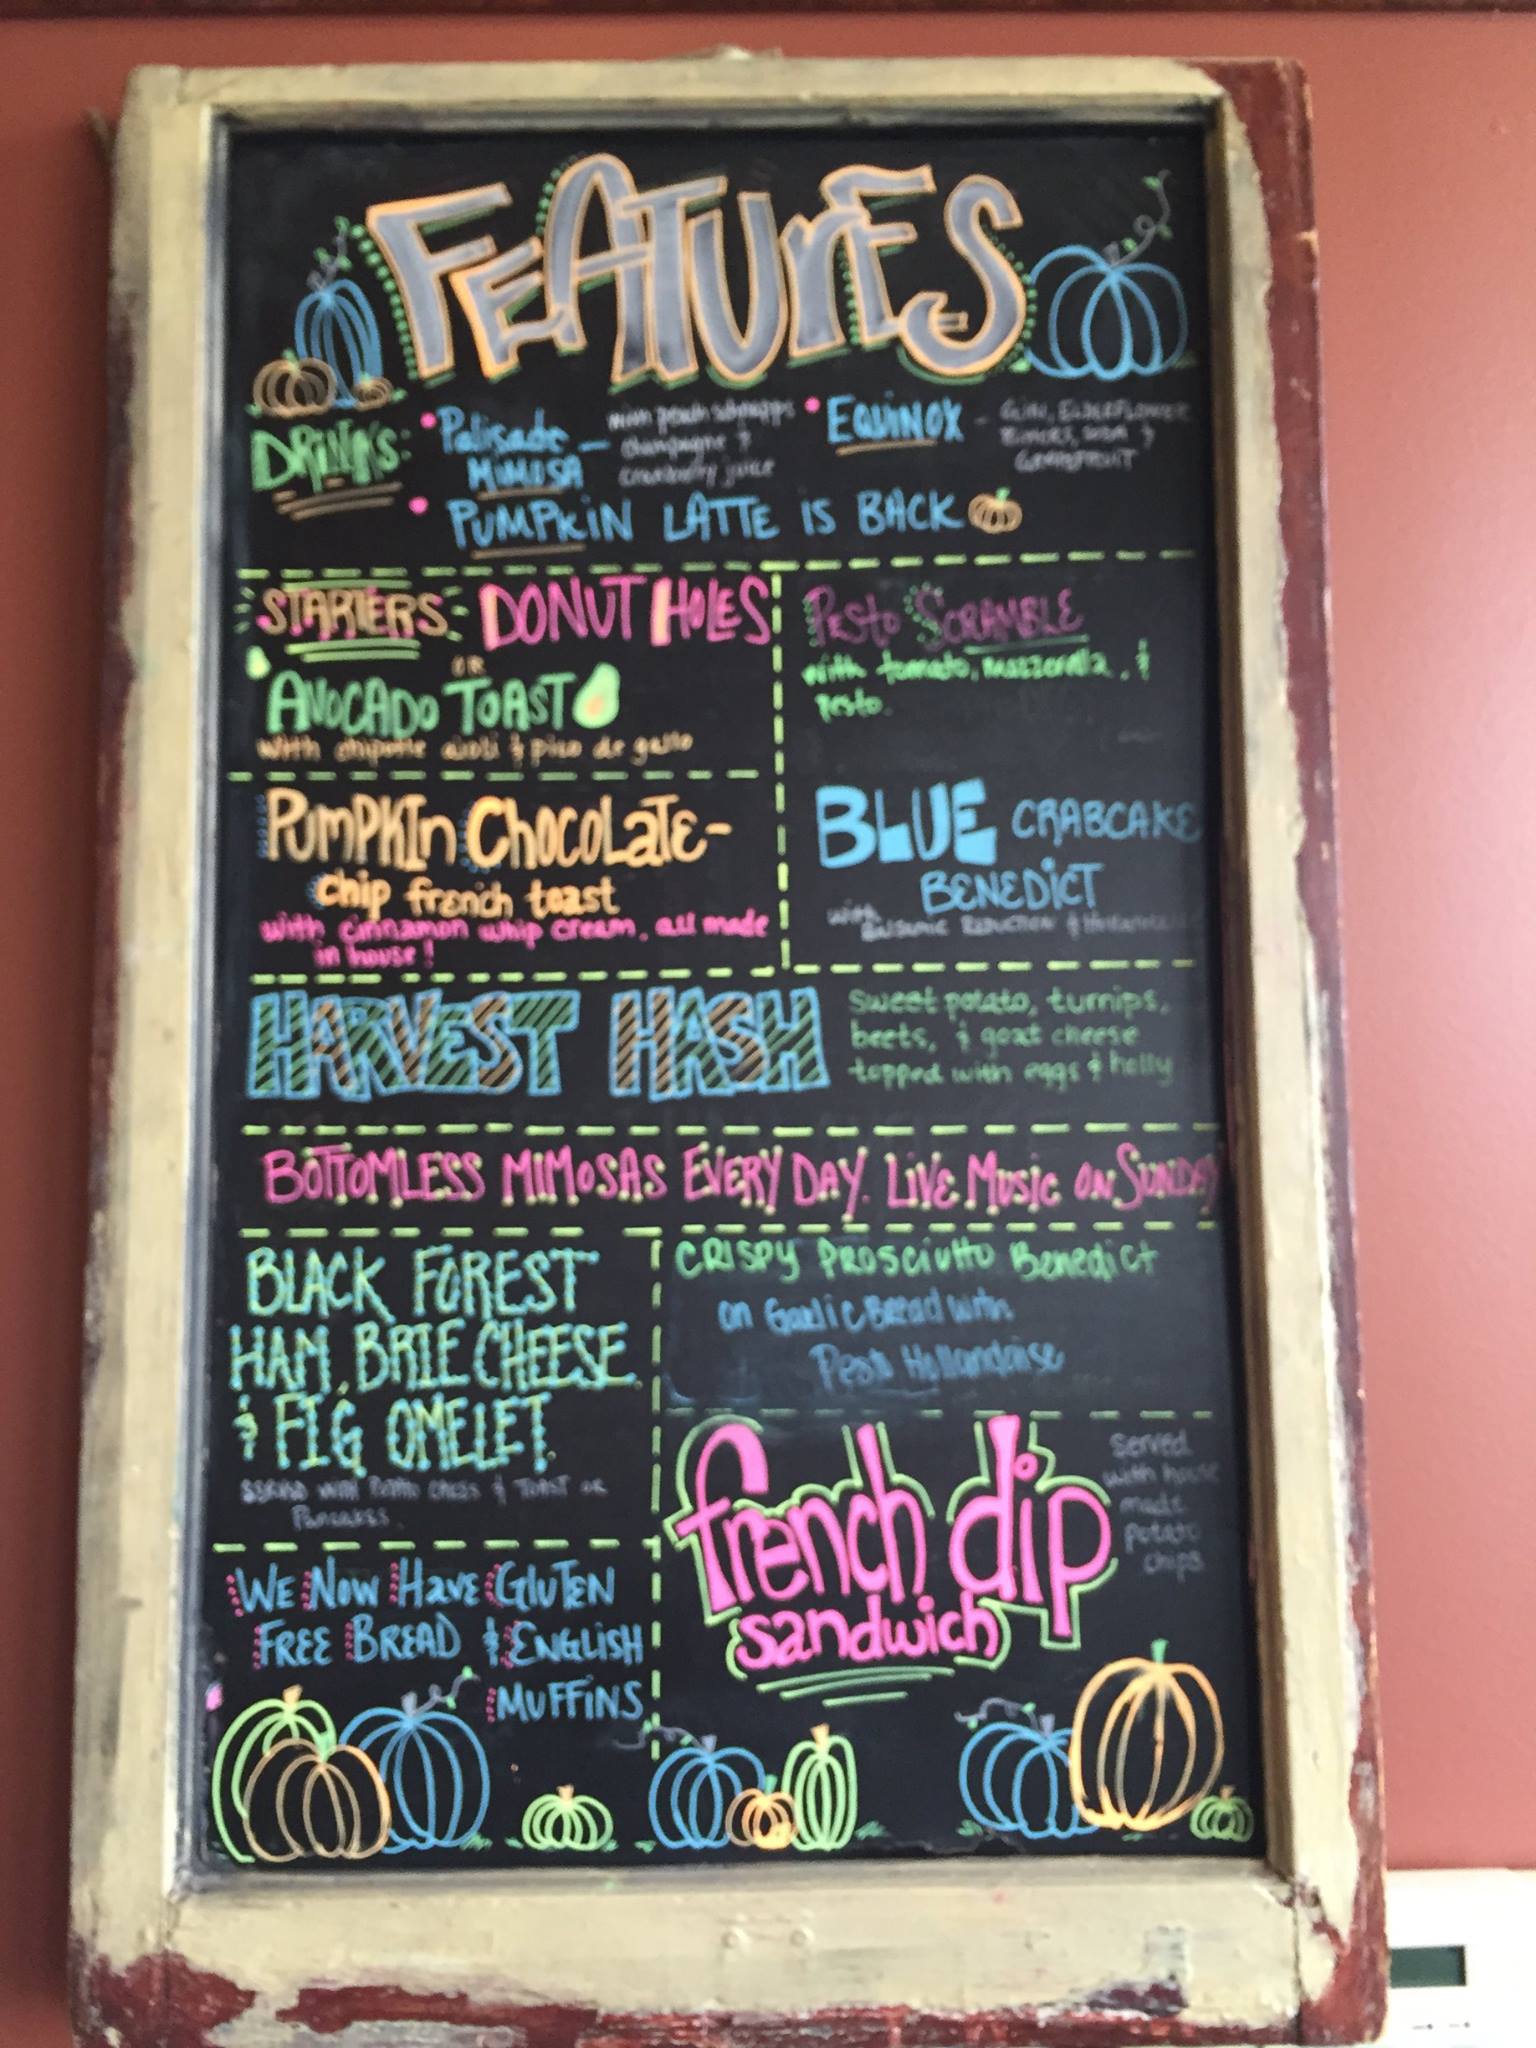 FEATURES
DRINKS:
Palisade
MIMOSA
with peach schnapps
champagne &
cranberry juice
EQUINOX -
GIN, ELDERFLOWER
SODA &
GRAPEFRUIT
PUMPKIN LATTE IS BACK
STARTERS DONUT HOLES
OR
AVOCADO TOAST
with chipotle aioli & pico de gallo
Pesto SCRAMBLE
with tomato, mozzerella, &
Pesto.
PUMPKIN CHOCOLATE-
chip french toast
with cinnamon whip cream. all made
in house!
BLUE CRABCAKE
BENEDICT
with
BALSAMIC REDUCTION &
HARVEST HASH
Sweet potato, turnips,
beets, & goat cheese
topped with eggs & holly
BOTTOMLESS MIMOSAS EVERY DAY. LIVE MUSIC ON SUNDAY
BLACK FOREST
HAM, BRIE CHEESE
& FIG OMELET.
SERVED WITH & TOAST OR
PANCAKES.
CRISPY PROSCIUTTO Benedict
on Garlic Bread with
Pesto Hollandaise
french dip
sandwich
Served
with house
made
potato
chips
WE NOW HAVE GLUTEN
FREE BREAD & ENGLISH
MUFFINS